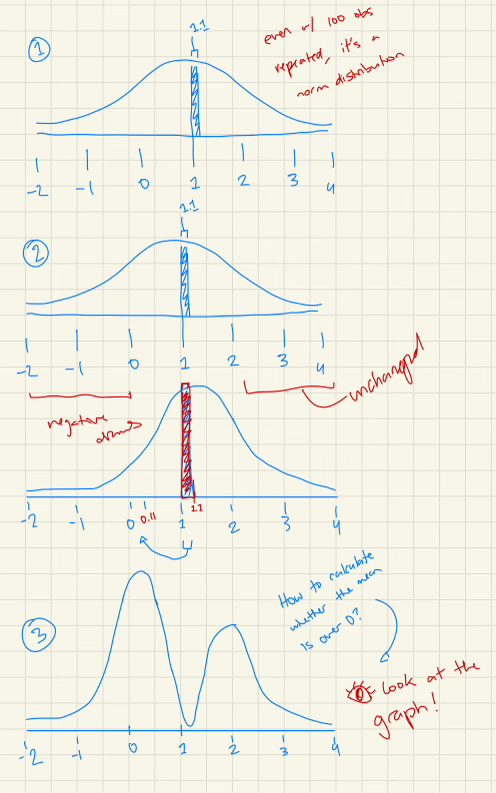 1
1.1
even w/ 100 obs
repeated, it's a
norm distribution
-2 -1 0 1 2 3 4
2
1.1
-2 -1 0 1 2 3 4
unchanged
negative
draws
-2 -1 0 0.11 1 1.1 2 3 4
3
How to calculate
whether the mean
is over 0?
Look at the
graph!
-2 -1 0 1 2 3 4